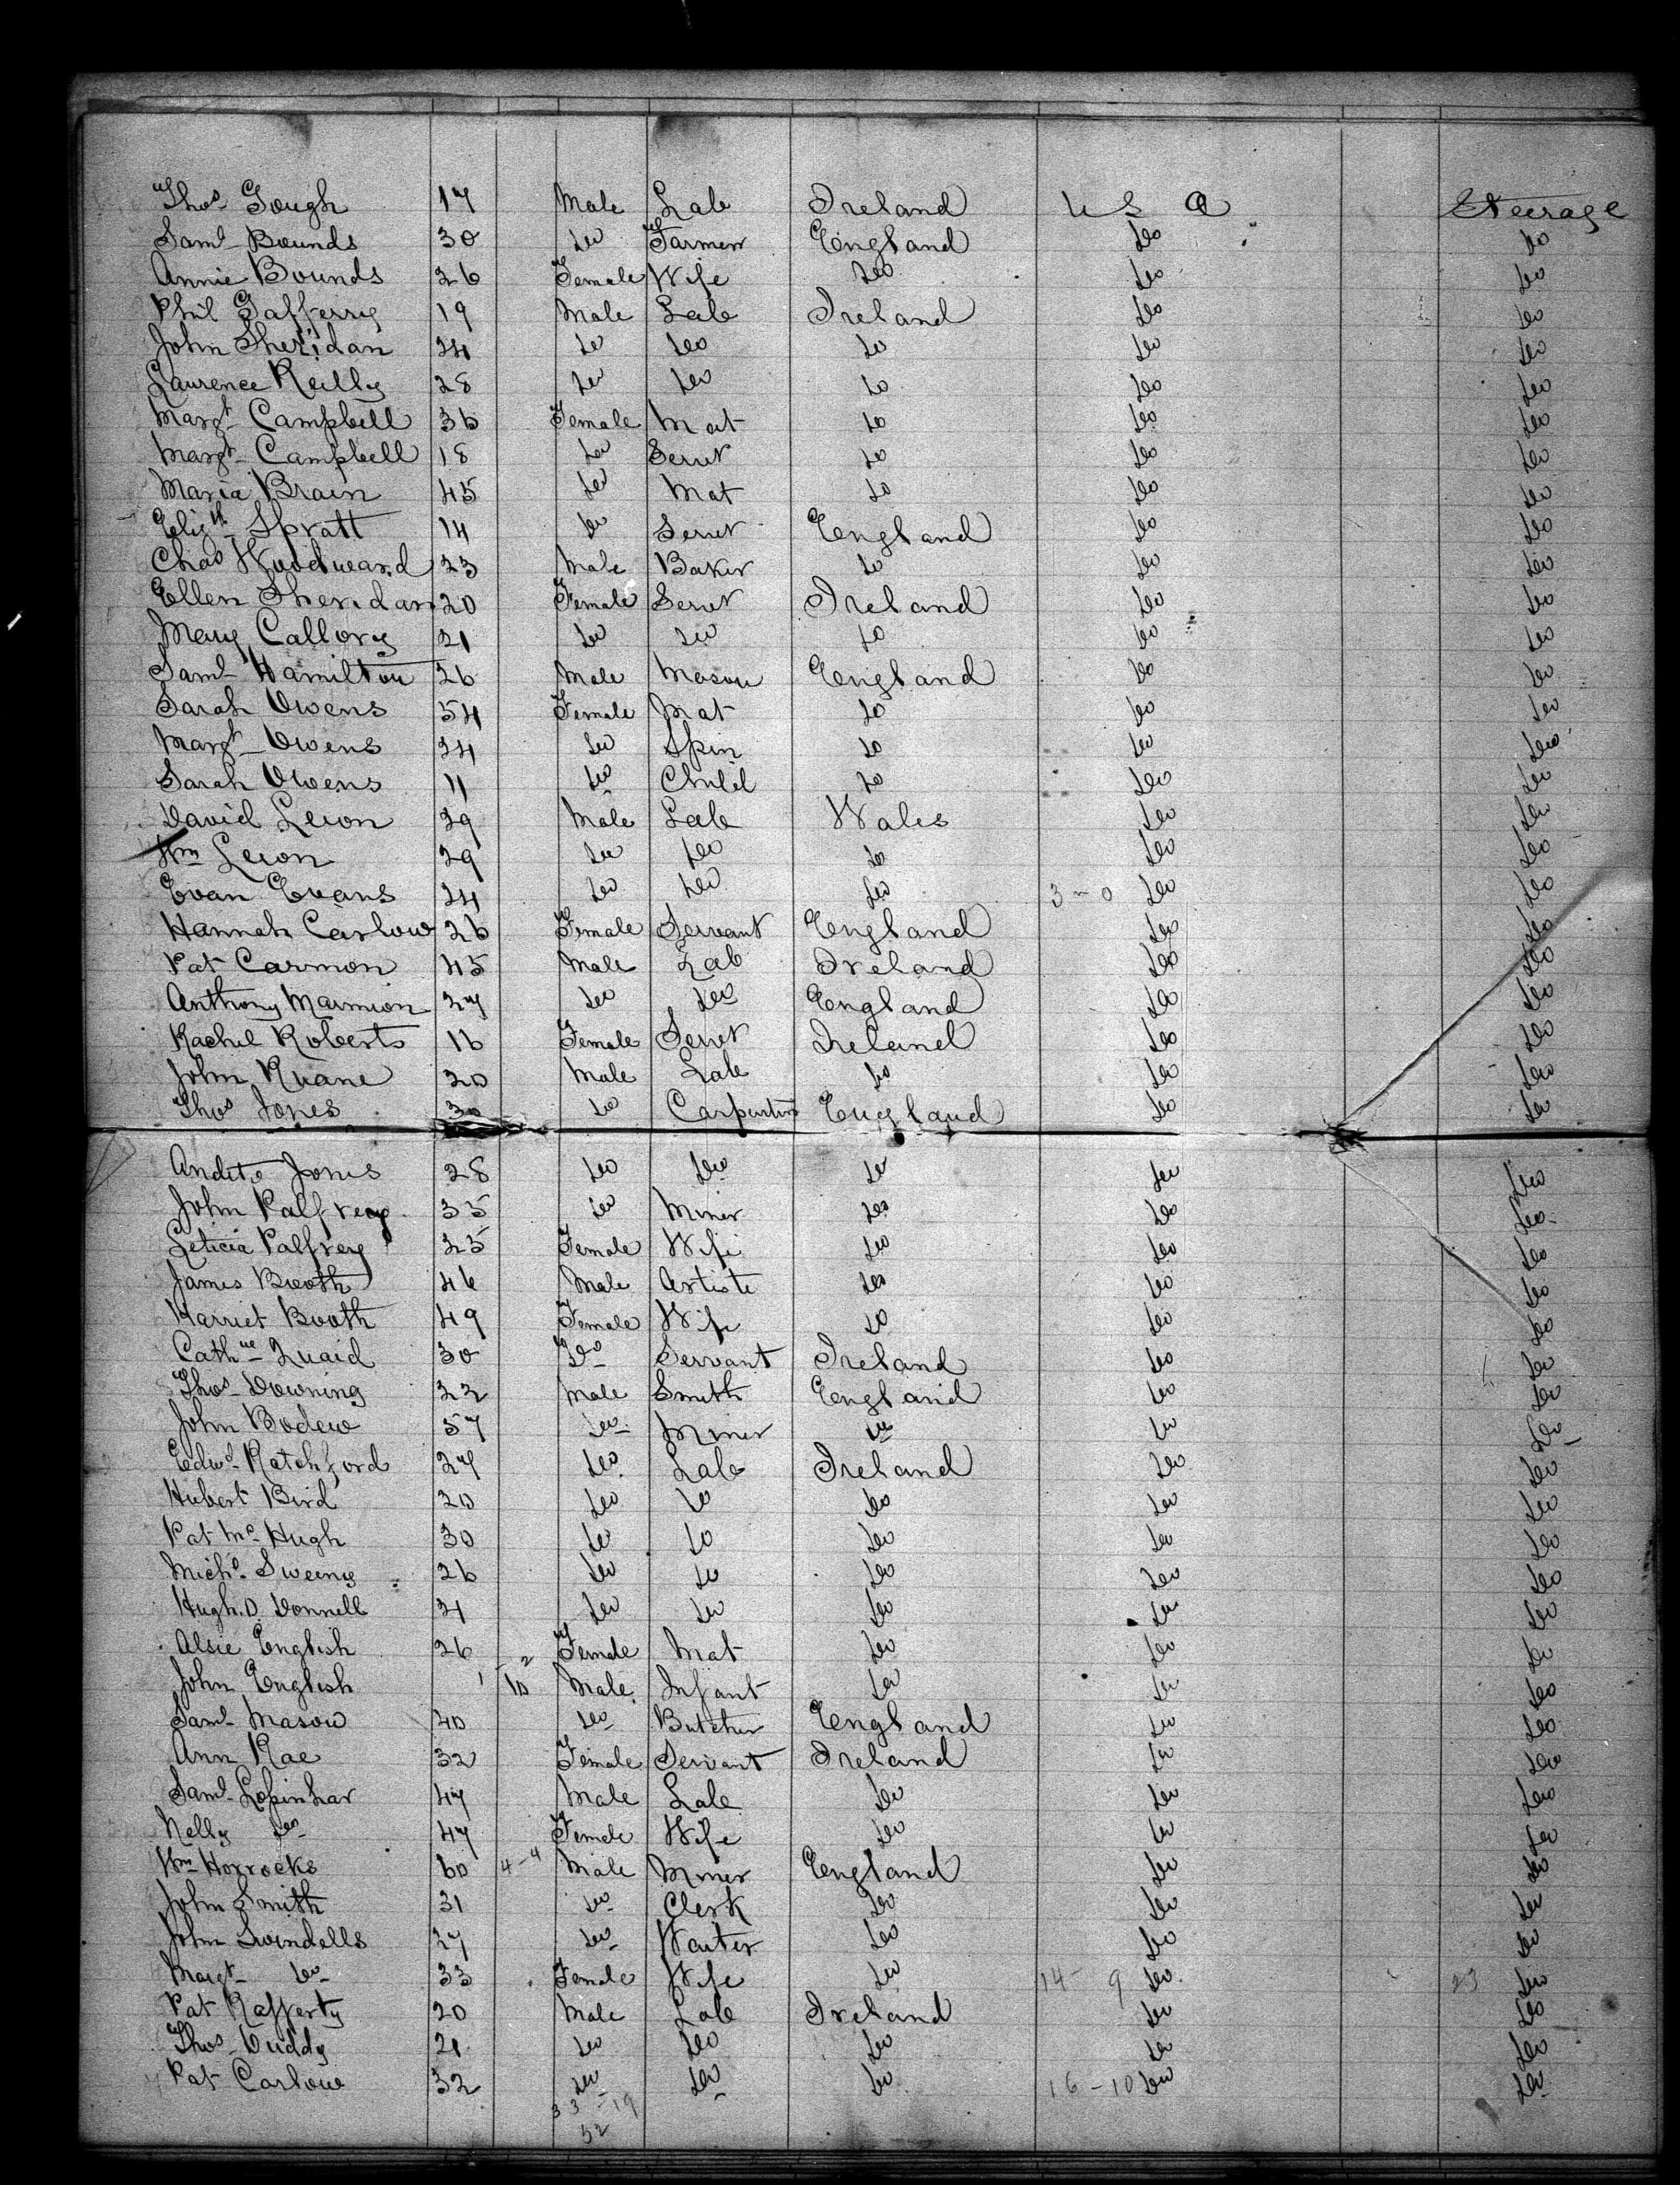 Thos Gough 17 Male Lab Ireland U S A Steerage
Saml Bounds 30 Do Farmer England Do Do
Annie Bounds 26 Female Wife Do Do Do
Phil Gafferry 19 Male Lab Ireland Do Do
John Sheridan 24 Do Do Do Do Do
Laurence Reilly 28 Do Do Do Do Do
Margt Campbell 36 Female Mat Do Do Do
Margt Campbell 18 Do Servt Do Do Do
Maria Brain 45 Do Mat Do Do Do
Elizth Spratt 14 Do Servt England Do Do
Chas Woodward 23 Male Baker Do Do Do
Ellen Sheridan 20 Female Servt Ireland Do Do
Mary Callory 21 Do Do Do Do Do
Saml Hamilton 26 Male Mason England Do Do
Sarah Owens 54 Female Mat Do Do Do
Margt Owens 24 Do Spin Do Do Do
Sarah Owens 11 Do Child Do Do Do
David Leion 29 Male Lab Wales Do Do
Wm Leion 29 Do Do Do Do Do
Evan Evans 24 Do Do Do 3 - 0 Do Do
Hannah Carlow 26 Female Servant England Do Do
Pat Carmon 45 Male Lab Ireland Do Do
Anthony Marmion 27 Do Do England Do Do
Rachel Roberts 16 Female Servt Ireland Do Do
John Ruane 20 Male Lab Do Do Do
Thos Jones 30 Do Carpenter England Do Do
Jones 28 Do Do Do Do Do
John Palfrey 35 Do Miner Do Do Do
Leticia Palfrey 25 Female Wife Do Do Do
James Booth 46 Male Artiste Do Do Do
Harriet Booth 49 Female Wife Do Do Do
Cathne Quaid 30 Do Servant Ireland Do Do
Thos Downing 22 Male Smith England Do Do
John Bodew 57 Do Miner Do Do Do
Edwd Ratchford 27 Do Lab Ireland Do Do
Hubert Bird 20 Do Do Do Do Do
Pat Mc Hugh 30 Do Do Do Do Do
Michl Sweeny 26 Do Do Do Do Do
Hugh O Donnell 21 Do Do Do Do Do
Alsie English 26 Female Mat Do Do Do
John English 10 Male Infant Do Do Do
Saml Mason 40 Do Butcher England Do Do
Ann Rae 32 Female Servant Ireland Do Do
Saml Lopinhar 47 Male Lab Do Do Do
Nelly Do 47 Female Wife Do Do Do
Wm Horrocks 60 4-4 Male Miner England Do Do
John Smith 31 Do Clerk Do Do Do
John Swindells 27 Do Waiter Do Do Do
Margt Do 33 Female Wife Do 14 - 9 Do 23 Do
Pat Rafferty 20 Male Lab Ireland Do Do
Thos Duddy 21 Do Do Do Do Do
Pat Carlow 32 Do Do Do 16 - 10 Do Do
33 - 19
52